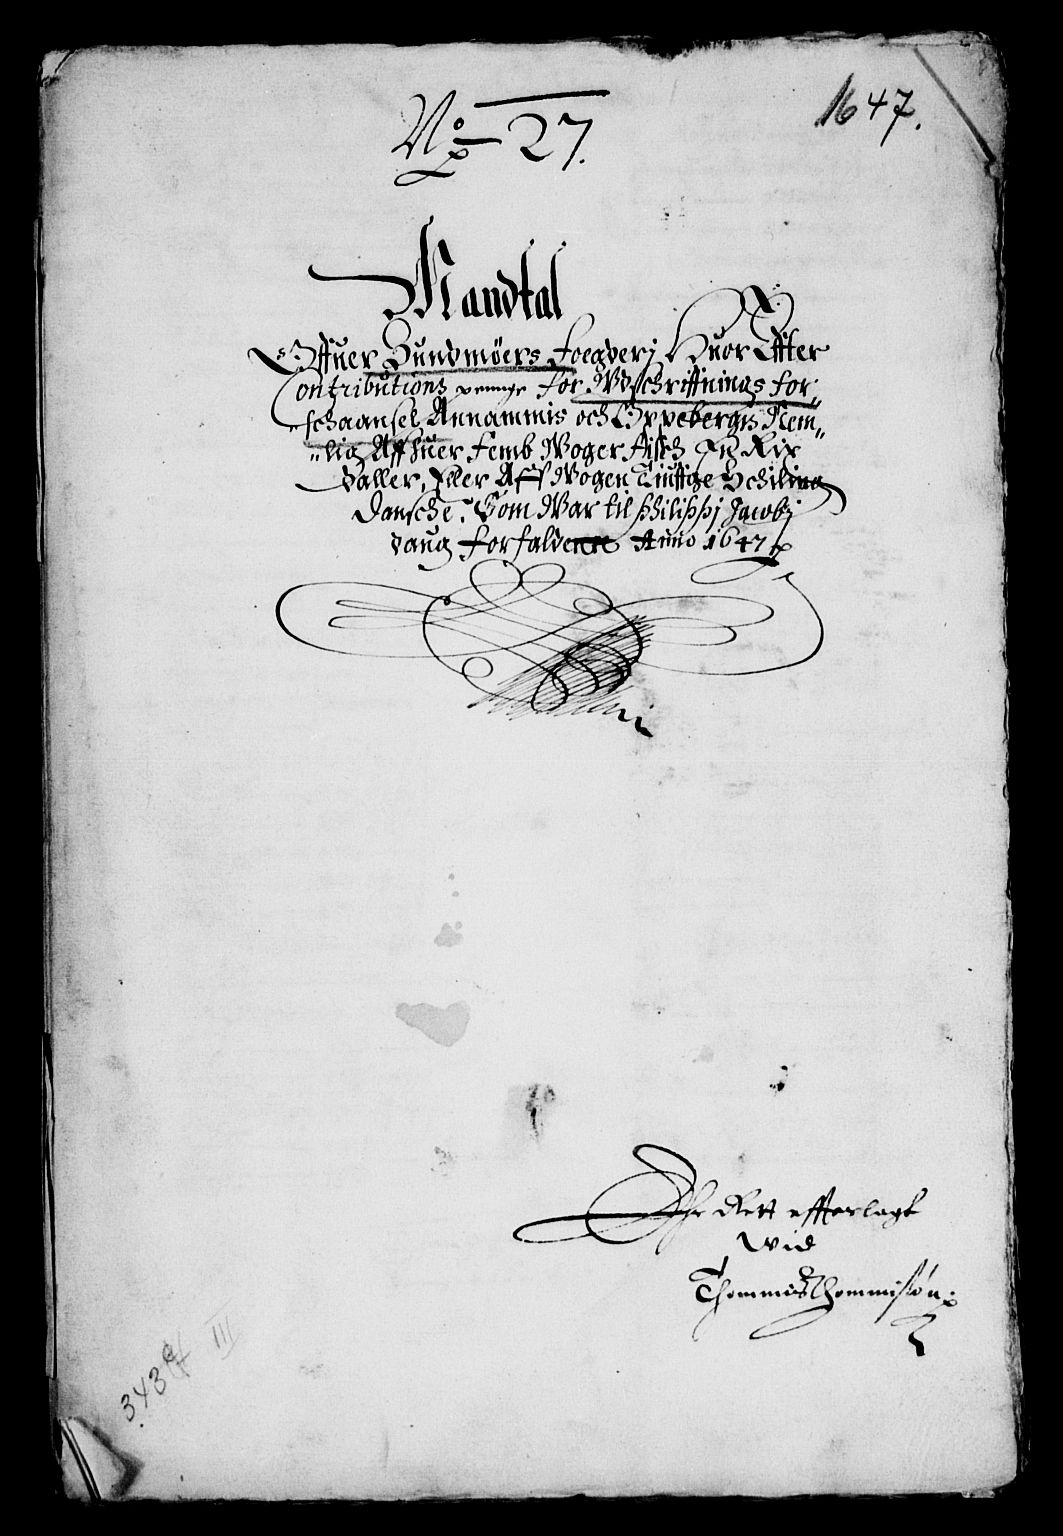 1647.
No 27.
Mandtal
Offuer Sundmöers Foegderj Huor Effter
Contributions penninge for Wdschriffnings for„
„schaansel Annammis och Oppebergis Nem„
„lig Aff huer femb Woger fisch En Rix
daller, Eller Aff Wogen Tiuffge Schiling
dansche. Som War til philippj Jacobj
daug forfaldenn Anno 1647
Er Rett effterlagt
Wid
Thommis Thommisøn.
343 III